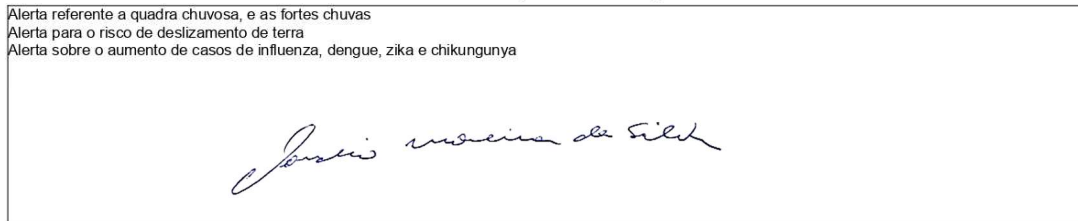 Alerta referente a quadra chuvosa, e as fortes chuvas
Alerta para o risco de deslizamento de terra
Alerta sobre o aumento de casos de influenza, dengue, zika e chikungunya
moreira da Silva